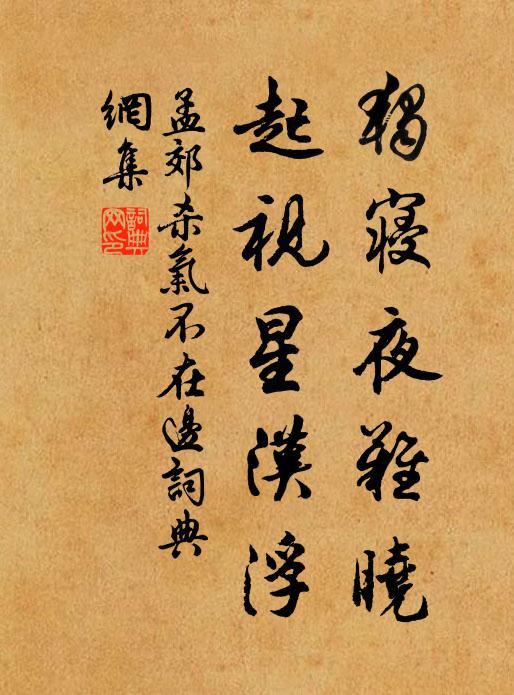 獨寢夜難曉
起視星漢浮
孟郊杀氣不在邊詞典
網集
詞典
网印